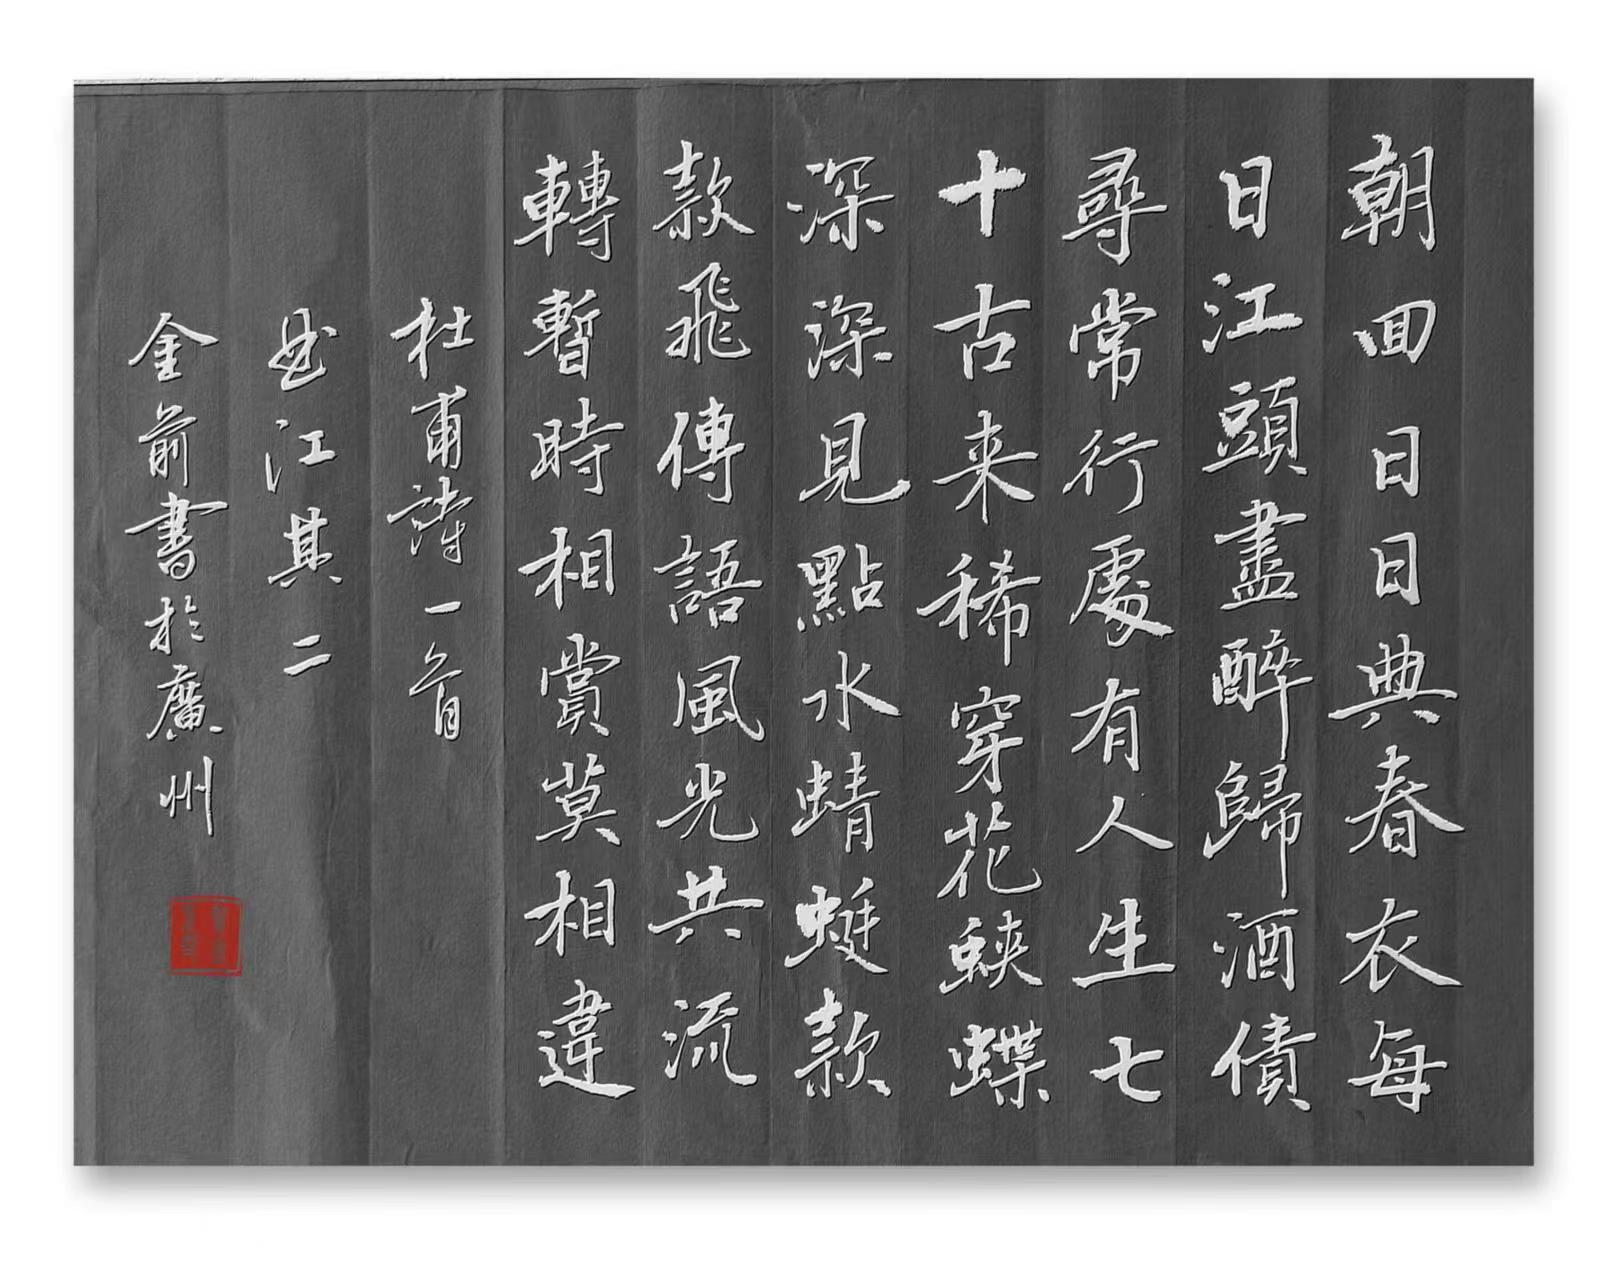 朝回日日典春衣每
日江頭盡醉歸酒債
尋常行處有人生七
十古来稀穿花蛺蝶
深深見點水蜻蜓款
款飛傳語風光共流
轉暫時相賞莫相違
杜甫詩一首
曲江其二
金前書於廣州